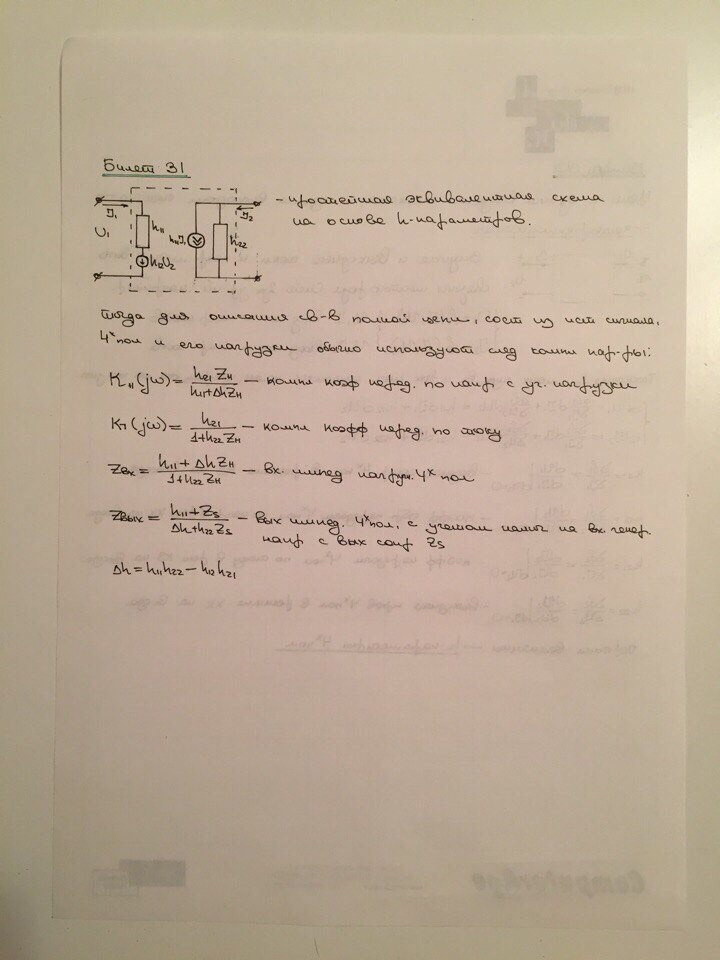 Билет 31
I₁
U₁
h₁₁
h₁₂U₂
h₂₂
I₂
- простейшая эквивалентная схема
на основе h-параметров.
тогда для описания св-в полной цепи, сост из ист сигнала,
4ˣпол и его нагрузки обычно используют след компл пар-ры:
Kн(jω) = h₂₁Zн / (h₁₁+ΔhZн) — компл коэф перед. по напр с уч. нагрузки
(jω) = h₂₁ / (1+h₂₂Zн) — компл коэфф перед. по току
Zвх = (h₁₁+ΔhZн) / (1+h₂₂Zн) — вх. импед нагруж. 4ˣпол
Zвых = (h₁₁+Zs) / (Δh+h₂₂Zs) — вых импед. 4ˣпол, с учетом на вх. генер.
напр с вых сопр Zs
Δh = h₁₁h₂₂ − h₁₂h₂₁